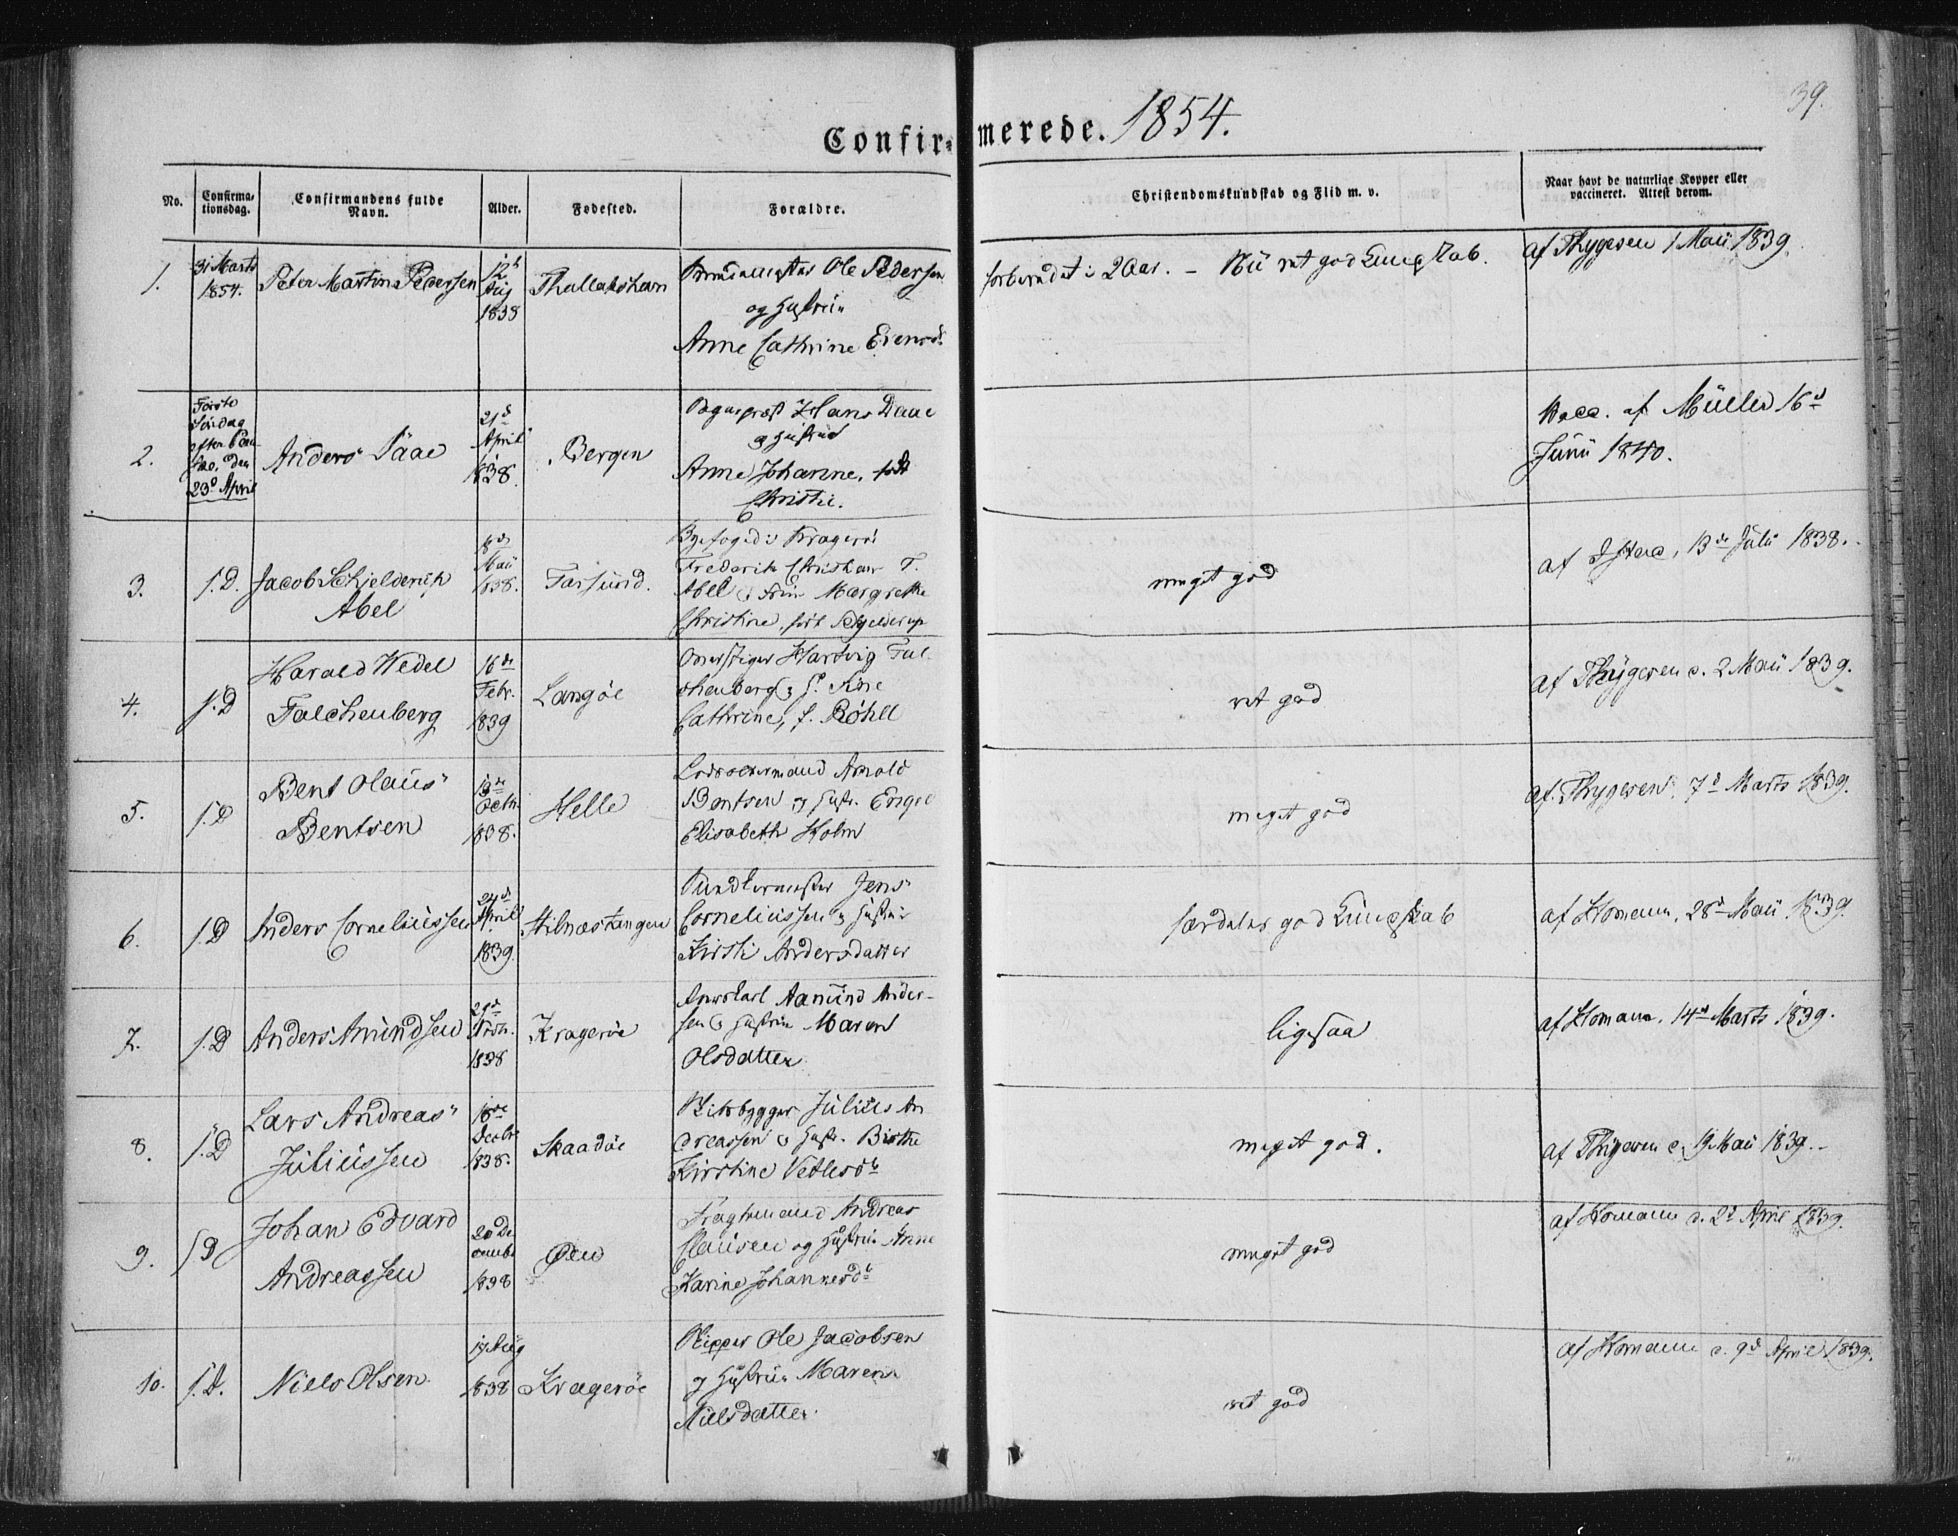 39.
Confirmerede. 1854.
No.
Confirmationsdag.
Confirmandens fulde Navn.
Alder.
Fødested.
Forældre.
Christendomskundskab og Flid m. v.
Naar havt de naturlige Kopper eller vaccineret. Attest derom.
1.
31 Marts
1854.
Peter Martin Pedersen
12t
Aug
1838
Ole Pedersen
og Hustrue
Anne Cathrine
forberedet i 2 Aar. – Nu ret god Kundskab.
af Thygesen 1 Maii 1839.
2.
Første
Søndag
efter Paa-
ske, den
23d April
Anders Daae
21d
April
1838.
Bergen
Sognepræst Hans Daae
og Hustrue
Anne Johanne, født
Christie.
Vacc. af Müller 16d
Junii 1840.
3.
S. D.
Jacob Schjelderup
Abel
8d
Maii
1838.
Farsund.
Byefoged i Kragerøe
Frederik Christian F.
Abel og Frue Margrethe
Christine, født Schjelderup
meget god
13de Julii 1838.
4.
S. D
Harald Wedel
Falchenberg
16de
Febr.
1839
Langøe
Overstiger Hartvig Fal-
chenberg og H. Sine
Cathrine, f. Röhll
ret god
af Thygesen d. 2 Maii 1839.
5.
S. D
Bent Olaus
Bentsen
13de
Octbr
1838.
Helle
Lodsoldermand Arnold
Bentsen og Hustr. Engel
Elisabeth Holm
meget god
af Thygesen, 7d Marts 1839.
6.
S. D
Anders Corneliussen
24d
April
1839
Stilnæstangen
Jens
Corneliussen og Hustrue
Kirsti Andersdatter
særdeles god Kundskab
af Homann, 28d Maii 1839.
7.
S. D
Anders Amundsen
29d
Novb.
1838
Kragerøe
Aamund Ander-
sen og Hustrue Maren
Olsdatter
ligesaa
af Homann, 14d Marts 1839.
8.
S. D
Lars Andreas
Juliussen
18de
Decbr
1838.
Skaadøe
Skibsbygger Julius An-
dreassen og Hustr. Birthe
Kirstine Vetlesdt
meget god.
af Thygesen d. 19 Maii 1839.
9.
S D
Johan Edvard
Andreassen
20 De-
cembr
1838
Øen
Fragtemand Andreas
Clausen og Hustrue Anne
Karine Johannesdt
meget god
af Homann d. 2d April 1839.
10.
S. D.
Niels Olsen
17 Aug
1838
Kragerøe
Skipper Ole Jacobsen
og Hustrue Maren
Nielsdatter.
ret god
af Homann d. 9d April 1839.